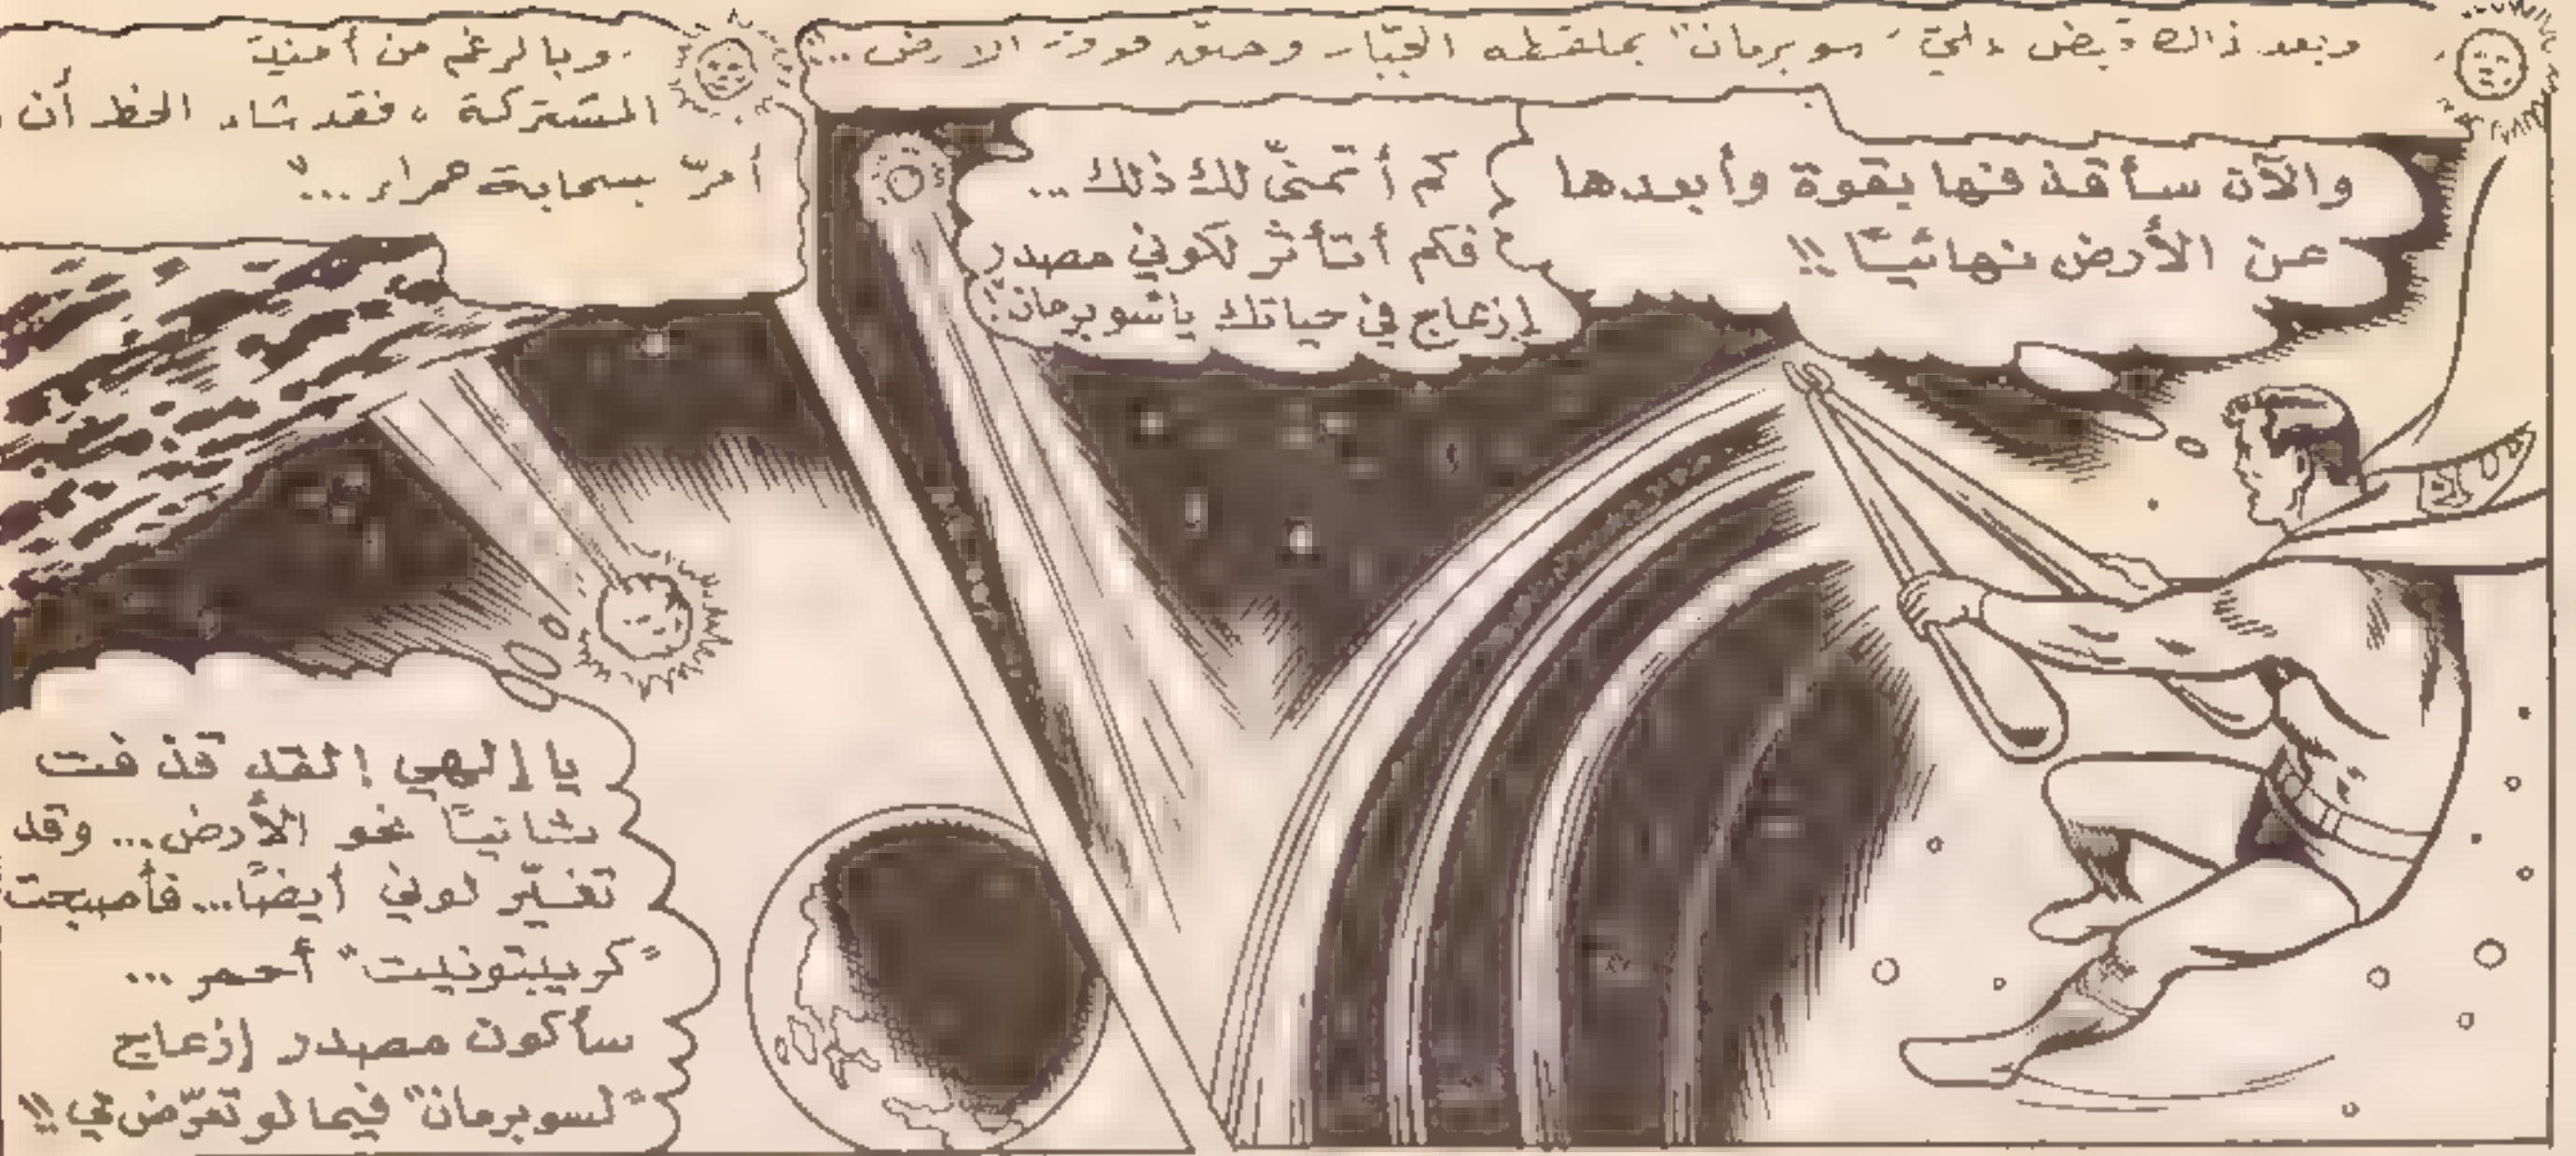 وبعد ذلك قبض عليّ "سوبرمان" بملقطه الجبّار وحلّق فوق الارض ..."
والآن سأقذفها بقوة وأبعدها
عن الأرض نهائيًّا !!
كم أتمنّى لك ذلك ...
فكم أتأثر لكوني مصدر
إزعاج في حياتك يا سوبرمان!
وبالرغم من أمنية
المشتركة ، فقد شاء الحظ أن
أمرّ بسحابة حمراء ..."
يا إلهي ! لقد قذفت
ثانيًا نحو الأرض ... وقد
تغيّر لوني أيضًا ... فأصبحت
"كريبتونيت" أحمر ...
سأكون مصدر إزعاج
"لسوبرمان" فيما لو تعرّض لي !!